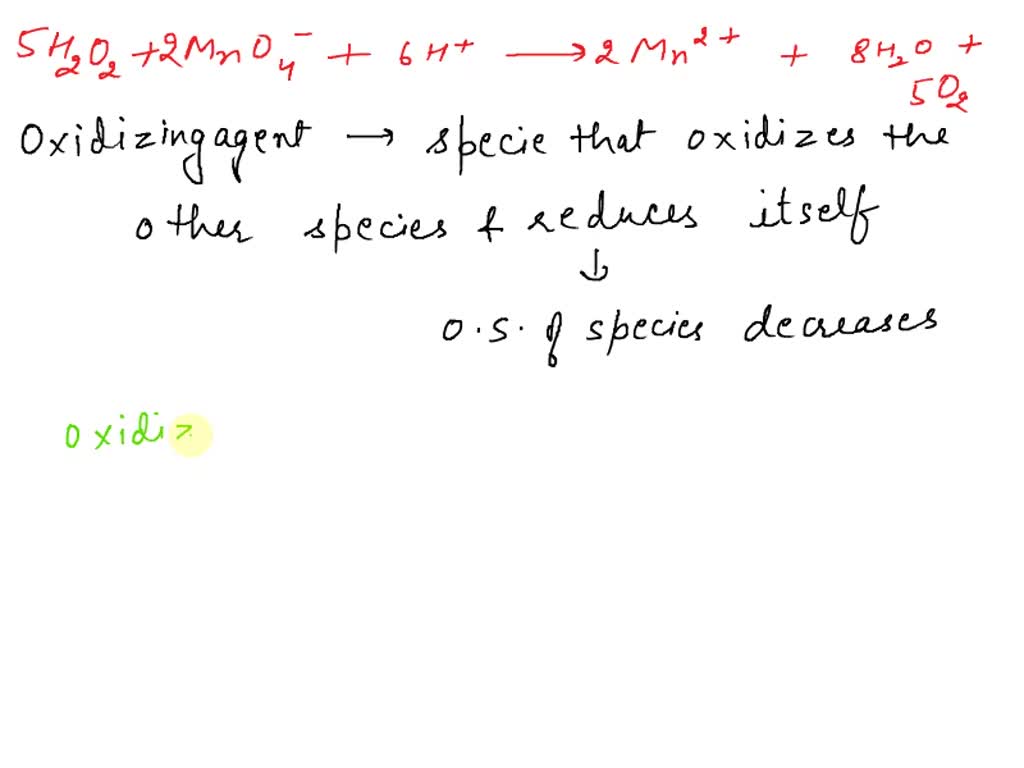 5H₂O₂ + 2MnO₄⁻ + 6H⁺ ⟶ 2Mn²⁺ + 8H₂O +
5O₂
Oxidizing agent → specie that oxidizes the
other species & reduces itself
↓
O.S. of species decreases
oxidiz